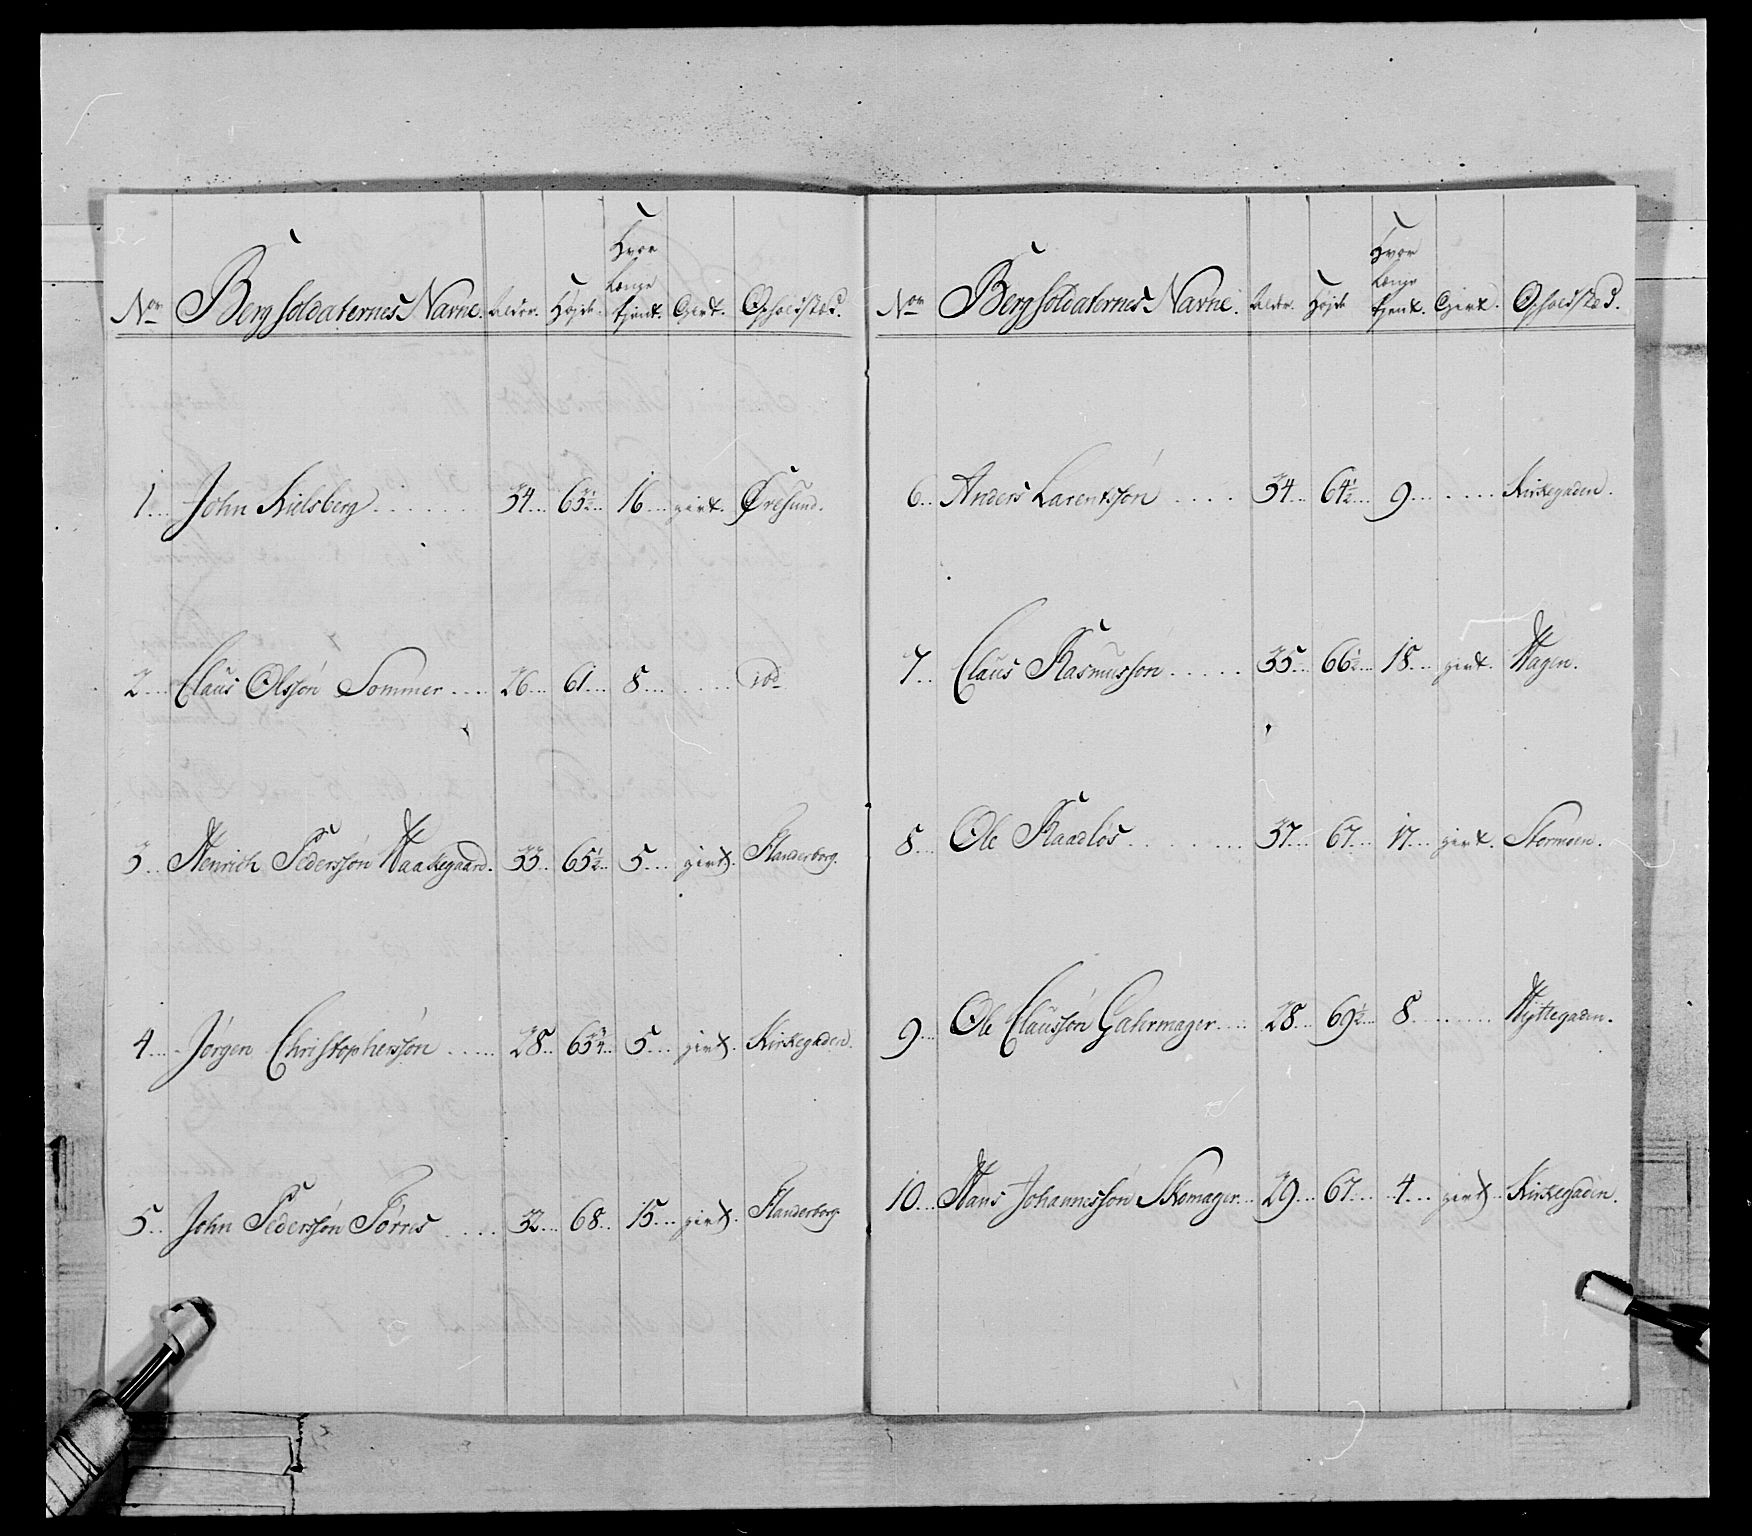 No Bergsoldaternes Navne. Alder. Højde. Hvor længe tjent. Givt. Opholdsted.
1 John Kielsberg 34 63½ 16 givt. Øresund.
2 Claus Olssøn Sommer 26 61 8
3 Henrich Pederssøn Haakegaard. 33 65½ 5 givt. Skanderborg.
4 Jørgen Christopherssøn 28 63¾ 5 givt. Kirkegaden.
5 John Pederssøn Tørres 32 68 15 givt. Skanderborg
No Bergsoldaternes Navne. Alder. Højde Hvor længe tjent. Givt. Opholdsted.
6 Anders Larentssøn 34 64½ 9 Kirkegaden.
7 Claus Rasmussøn 35 66½ 18 givt. Hagen.
8 Ole Raadlos 37 67 17 givt. Stormoen.
9 Ole Claussøn Gatermager 28 69½ 8 Hyttegaden.
10 Hans Johannessøn Skomager 29 67 4 givt Kirkegaden.